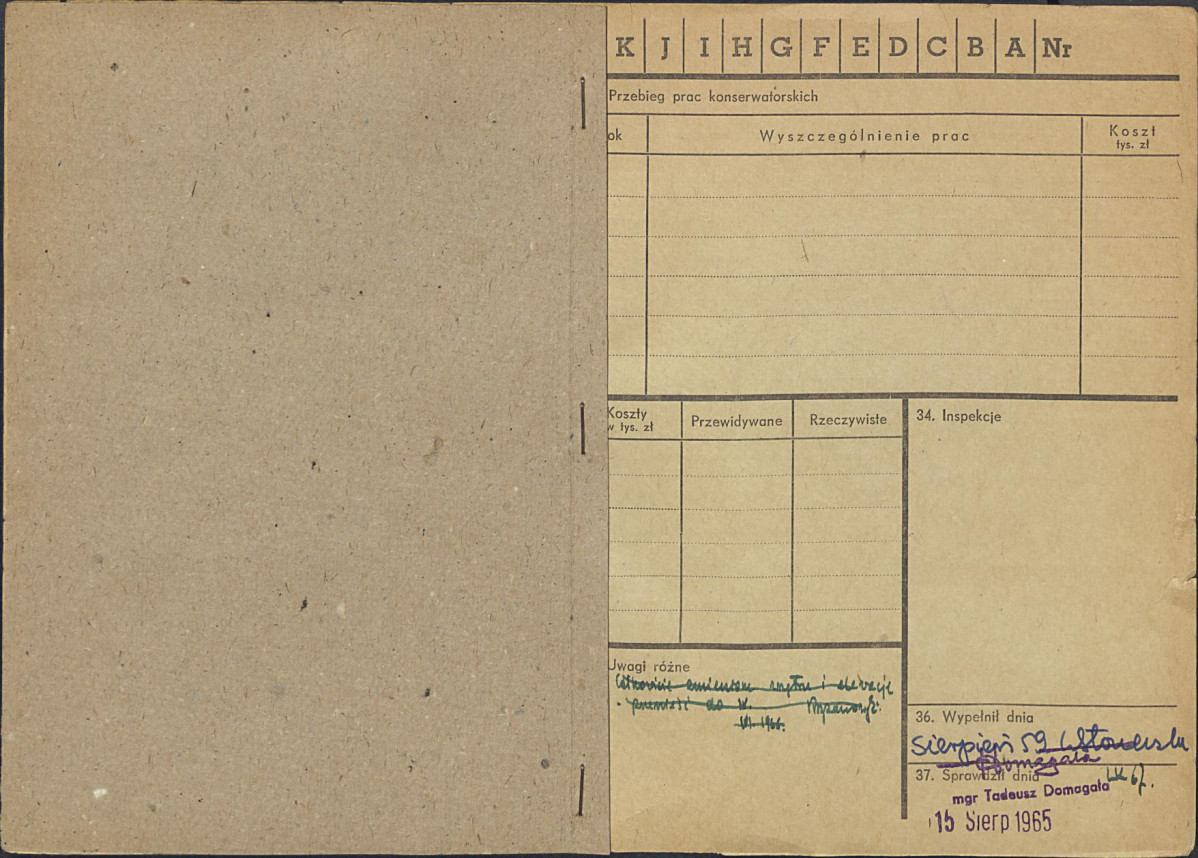 K J I H G F E D C B A Nr
Przebieg prac konserwatorskich
ok Wyszczególnienie prac Koszt
tys. zł
Koszty
w tys. zł Przewidywane Rzeczywiste
34. Inspekcje
Uwagi różne
i elewacje
do
VI. 1966.
36. Wypełnił dnia
Sierpień 59
Domagała
37. Sprawdził dnia
IX 67.
mgr Tadeusz Domagała
15 Sierp 1965